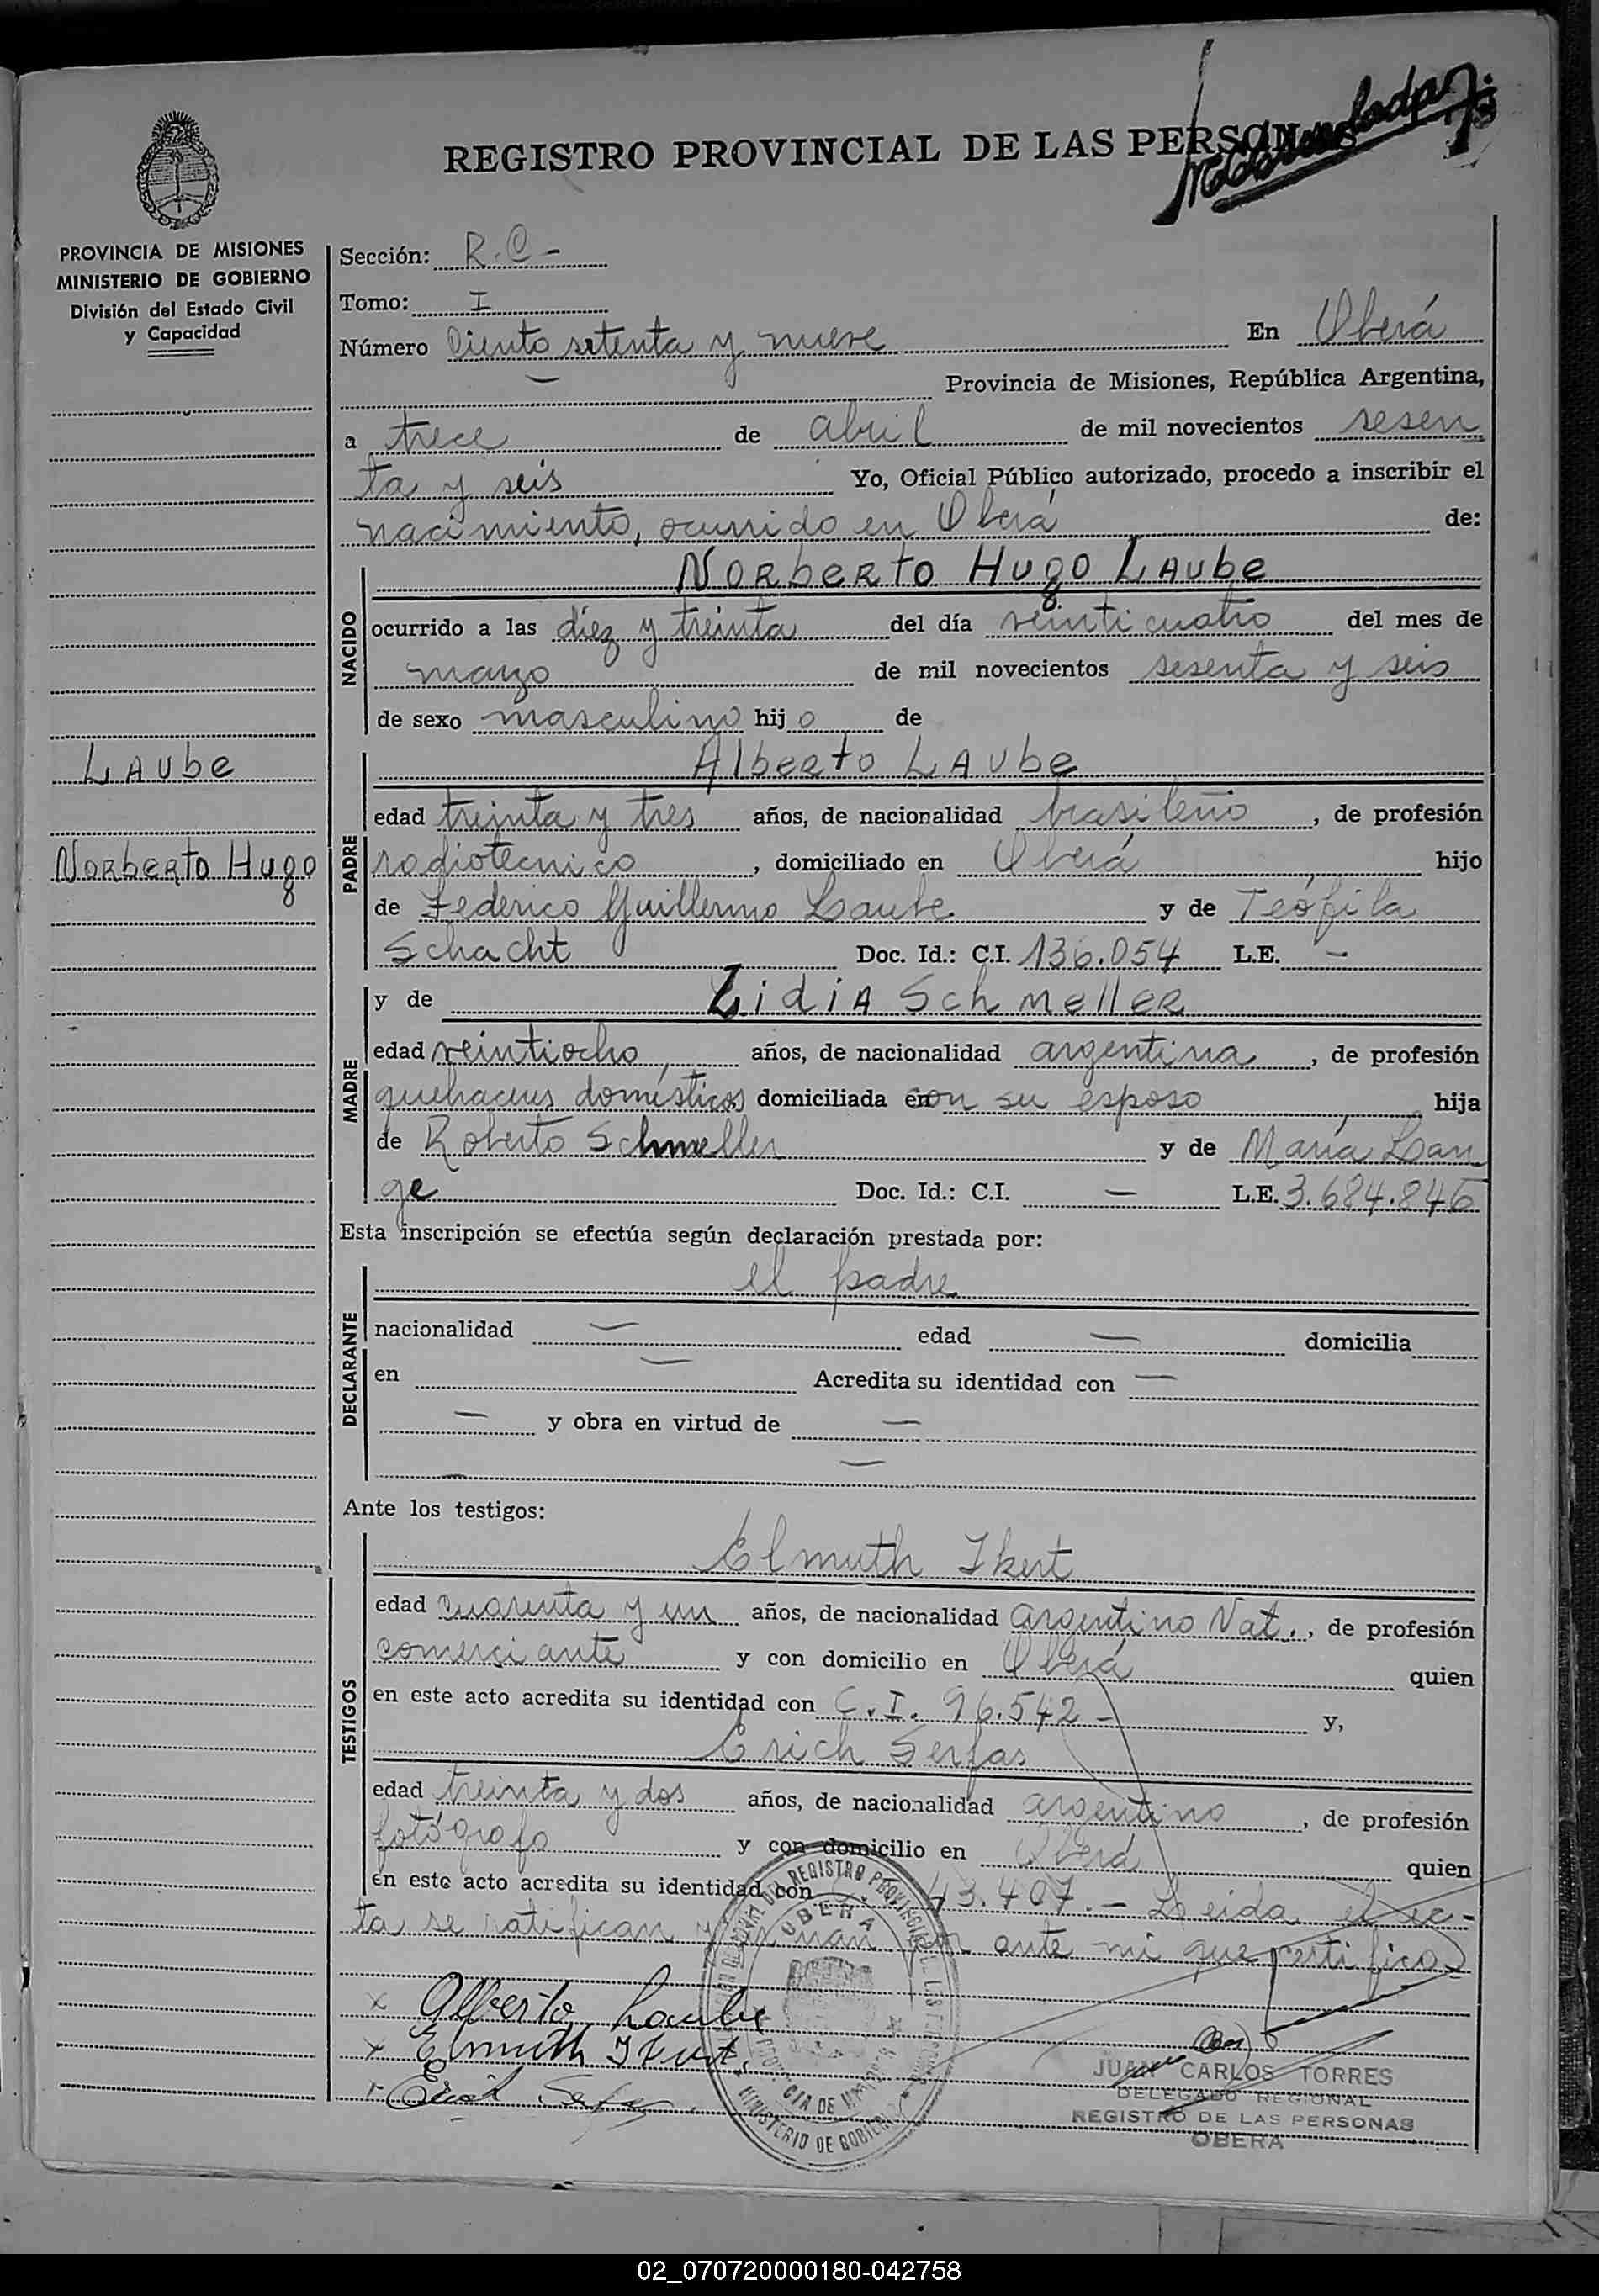 REGISTRO PROVINCIAL DE LAS PERSONAS
PROVINCIA DE MISIONES
MINISTERIO DE GOBIERNO
División del Estado Civil
y Capacidad
Laube
Norberto Hugo
Sección: R.C-
Tomo: I
Número Ciento setenta y nueve En Oberá
— Provincia de Misiones, República Argentina,
a trece de abril de mil novecientos sesen
ta y seis Yo, Oficial Público autorizado, procedo a inscribir el
nacimiento, ocurrido en Oberá de:
NACIDO
Norberto Hugo Laube
ocurrido a las diez y treinta del día veinticuatro del mes de
marzo de mil novecientos sesenta y seis
de sexo masculino hijo de
PADRE
Alberto Laube
edad treinta y tres años, de nacionalidad brasileño, de profesión
radiotecnico, domiciliado en Oberá hijo
de Federico Guillermo Laube y de Teófila
Schacht Doc. Id.: C.I. 136.054 L.E. —
MADRE
y de Lidia Schmeller
edad veintiocho años, de nacionalidad argentina, de profesión
quehaceres domésticos domiciliada con su esposo hija
de Roberto Schmeller y de María Lan
ge Doc. Id.: C.I. — L.E. 3.684.846
Esta inscripción se efectúa según declaración prestada por:
DECLARANTE
el padre
nacionalidad — edad — domicilia
en — Acredita su identidad con —
— y obra en virtud de —
— —
Ante los testigos:
TESTIGOS
Elmuth Ikert
edad cuarenta y un años, de nacionalidad argentino Nat., de profesión
comerciante y con domicilio en Oberá quien
en este acto acredita su identidad con C.I. 96.542 - y,
Erich Serfas
edad treinta y dos años, de nacionalidad argentino, de profesión
fotógrafo y con domicilio en Oberá quien
en este acto acredita su identidad con 43.407.- Leida el ac-
ta se ratifican y firman ante mi que certifico
x Alberto Laube
x Elmuth Ikert.
Erich Serfas
REGISTRO PROVINCIAL DE LAS PERSONAS
OBERA
PROVINCIA DE MISIONES
MINISTERIO DE GOBIERNO
JUAN CARLOS TORRES
DELEGADO REGIONAL
REGISTRO DE LAS PERSONAS
OBERA
02_070720000180-042758